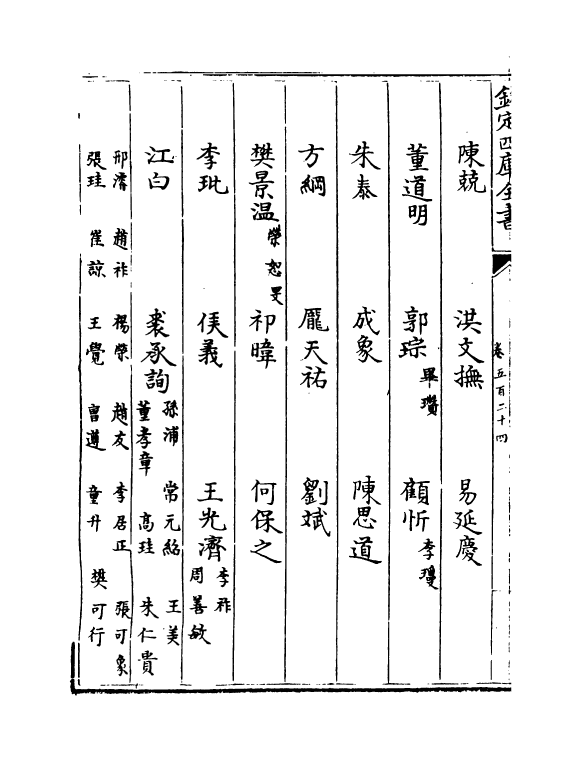 欽定四庫全書
卷五百二十四
陳兢　洪文撫　易延慶
董道明　郭琮畢瓚　顧忻李瓊
朱泰　成象　陳思道
方綱　龎天祐　劉斌
樊景温榮恕旻　祁暐　何保之
李玭　侯義　王光濟李祚周善敏
江白　裘承詢孫浦董孝章　常元紹高珪　王美朱仁貴
邢濬　趙祚　楊榮　趙友　李居正　張可象
張珪　崔諒　王覺　曾遵　童升　樊可行